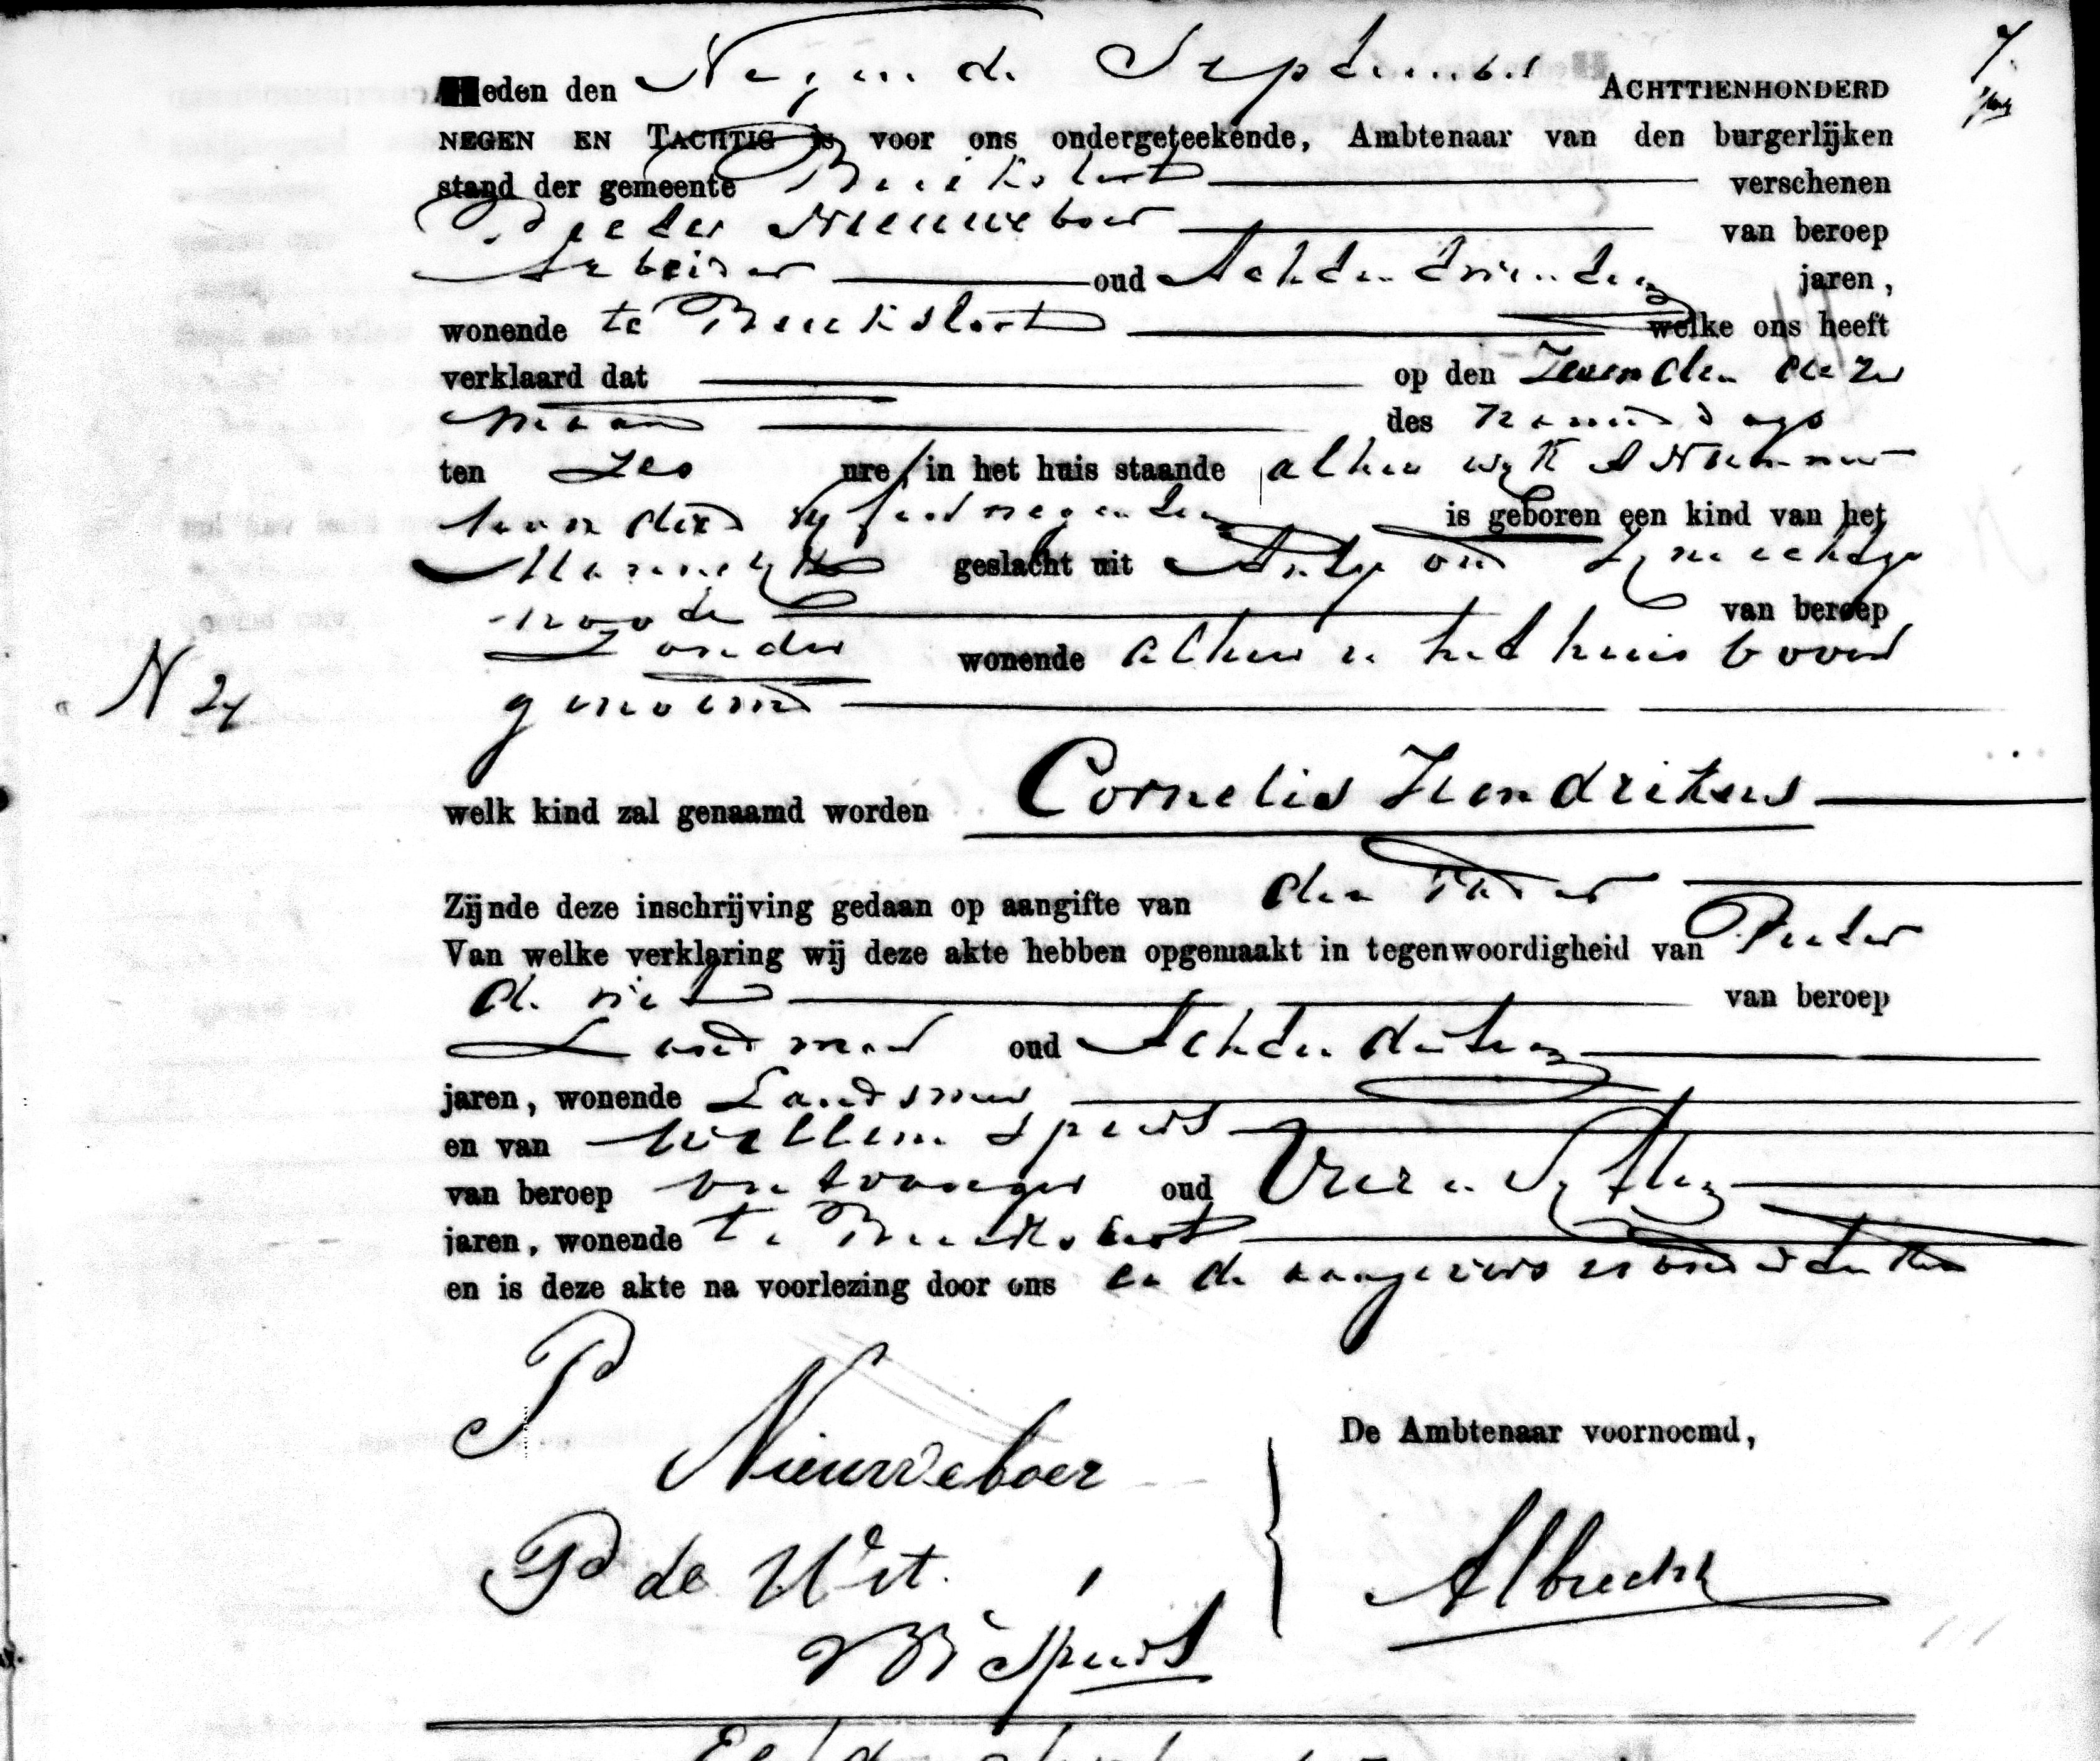 Heden den Negende September ACHTTIENHONDERD
NEGEN EN TACHTIG is voor ons ondergeteekende, Ambtenaar van den burgerlijken
stand der gemeente Buiksloot verschenen
Pieter Nieuweboer van beroep
Arbeider oud Achtendrientig jaren,
wonende te Buiksloot welke ons heeft
verklaard dat op den Zevenden dezer
maand des namiddags
ten Zes ure, in het huis staande alhier wijk A Nummer
honderd vijfennegentig is geboren een kind van het
Mannelijk geslacht uit Antje
van beroep
Zonder wonende alhier in het huis boven
genoemd
N 24
welk kind zal genaamd worden Cornelis Hendrikus
Zijnde deze inschrijving gedaan op aangifte van den Vader
Van welke verklaring wij deze akte hebben opgemaakt in tegenwoordigheid van Pieter
de Wit van beroep
Landman oud Achtendertig
jaren, wonende Landsmeer
en van Willem Spiers
van beroep ontvanger oud Vier en Vijftig
jaren, wonende te Buiksloot
en is deze akte na voorlezing door ons en de aangevers
P Nieuweboer
De Ambtenaar voornoemd,
P de Wit.
Albrecht
W Spiers